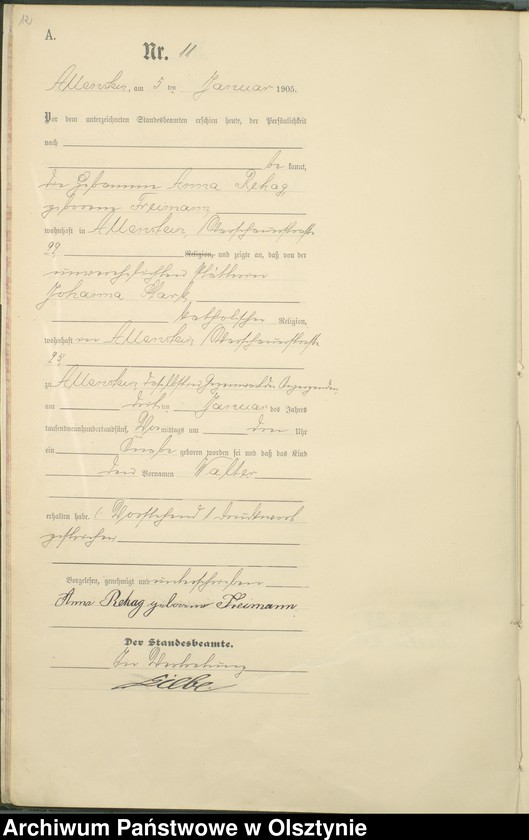 12
A.
Nr. 11
Allenstein, am 5 ten Januar 1905.
Vor dem unterzeichneten Standesbeamten erschien heute, der Persönlichkeit
nach
be kannt,
die Hebamme Anna Rehag,
geborene Freimann,
wohnhaft in Allenstein,
Religion, und zeigte an, daß von der
unverehelichten Plätterin
Johanna
katholischer Religion,
wohnhaft in Allenstein,
zu Allenstein
am dritten Januar des Jahres
tausendneunhundertundfünf, Vormittags um drei Uhr
ein Knabe geboren worden sei und daß das Kind
den Vornamen Walter
erhalten habe. Vorstehend 1 Druckwort
gestrichen
Vorgelesen, genehmigt und unterschrieben
Anna Rehag geborene Freimann.
Der Standesbeamte.
In Vertretung
Archiwum Państwowe w Olsztynie